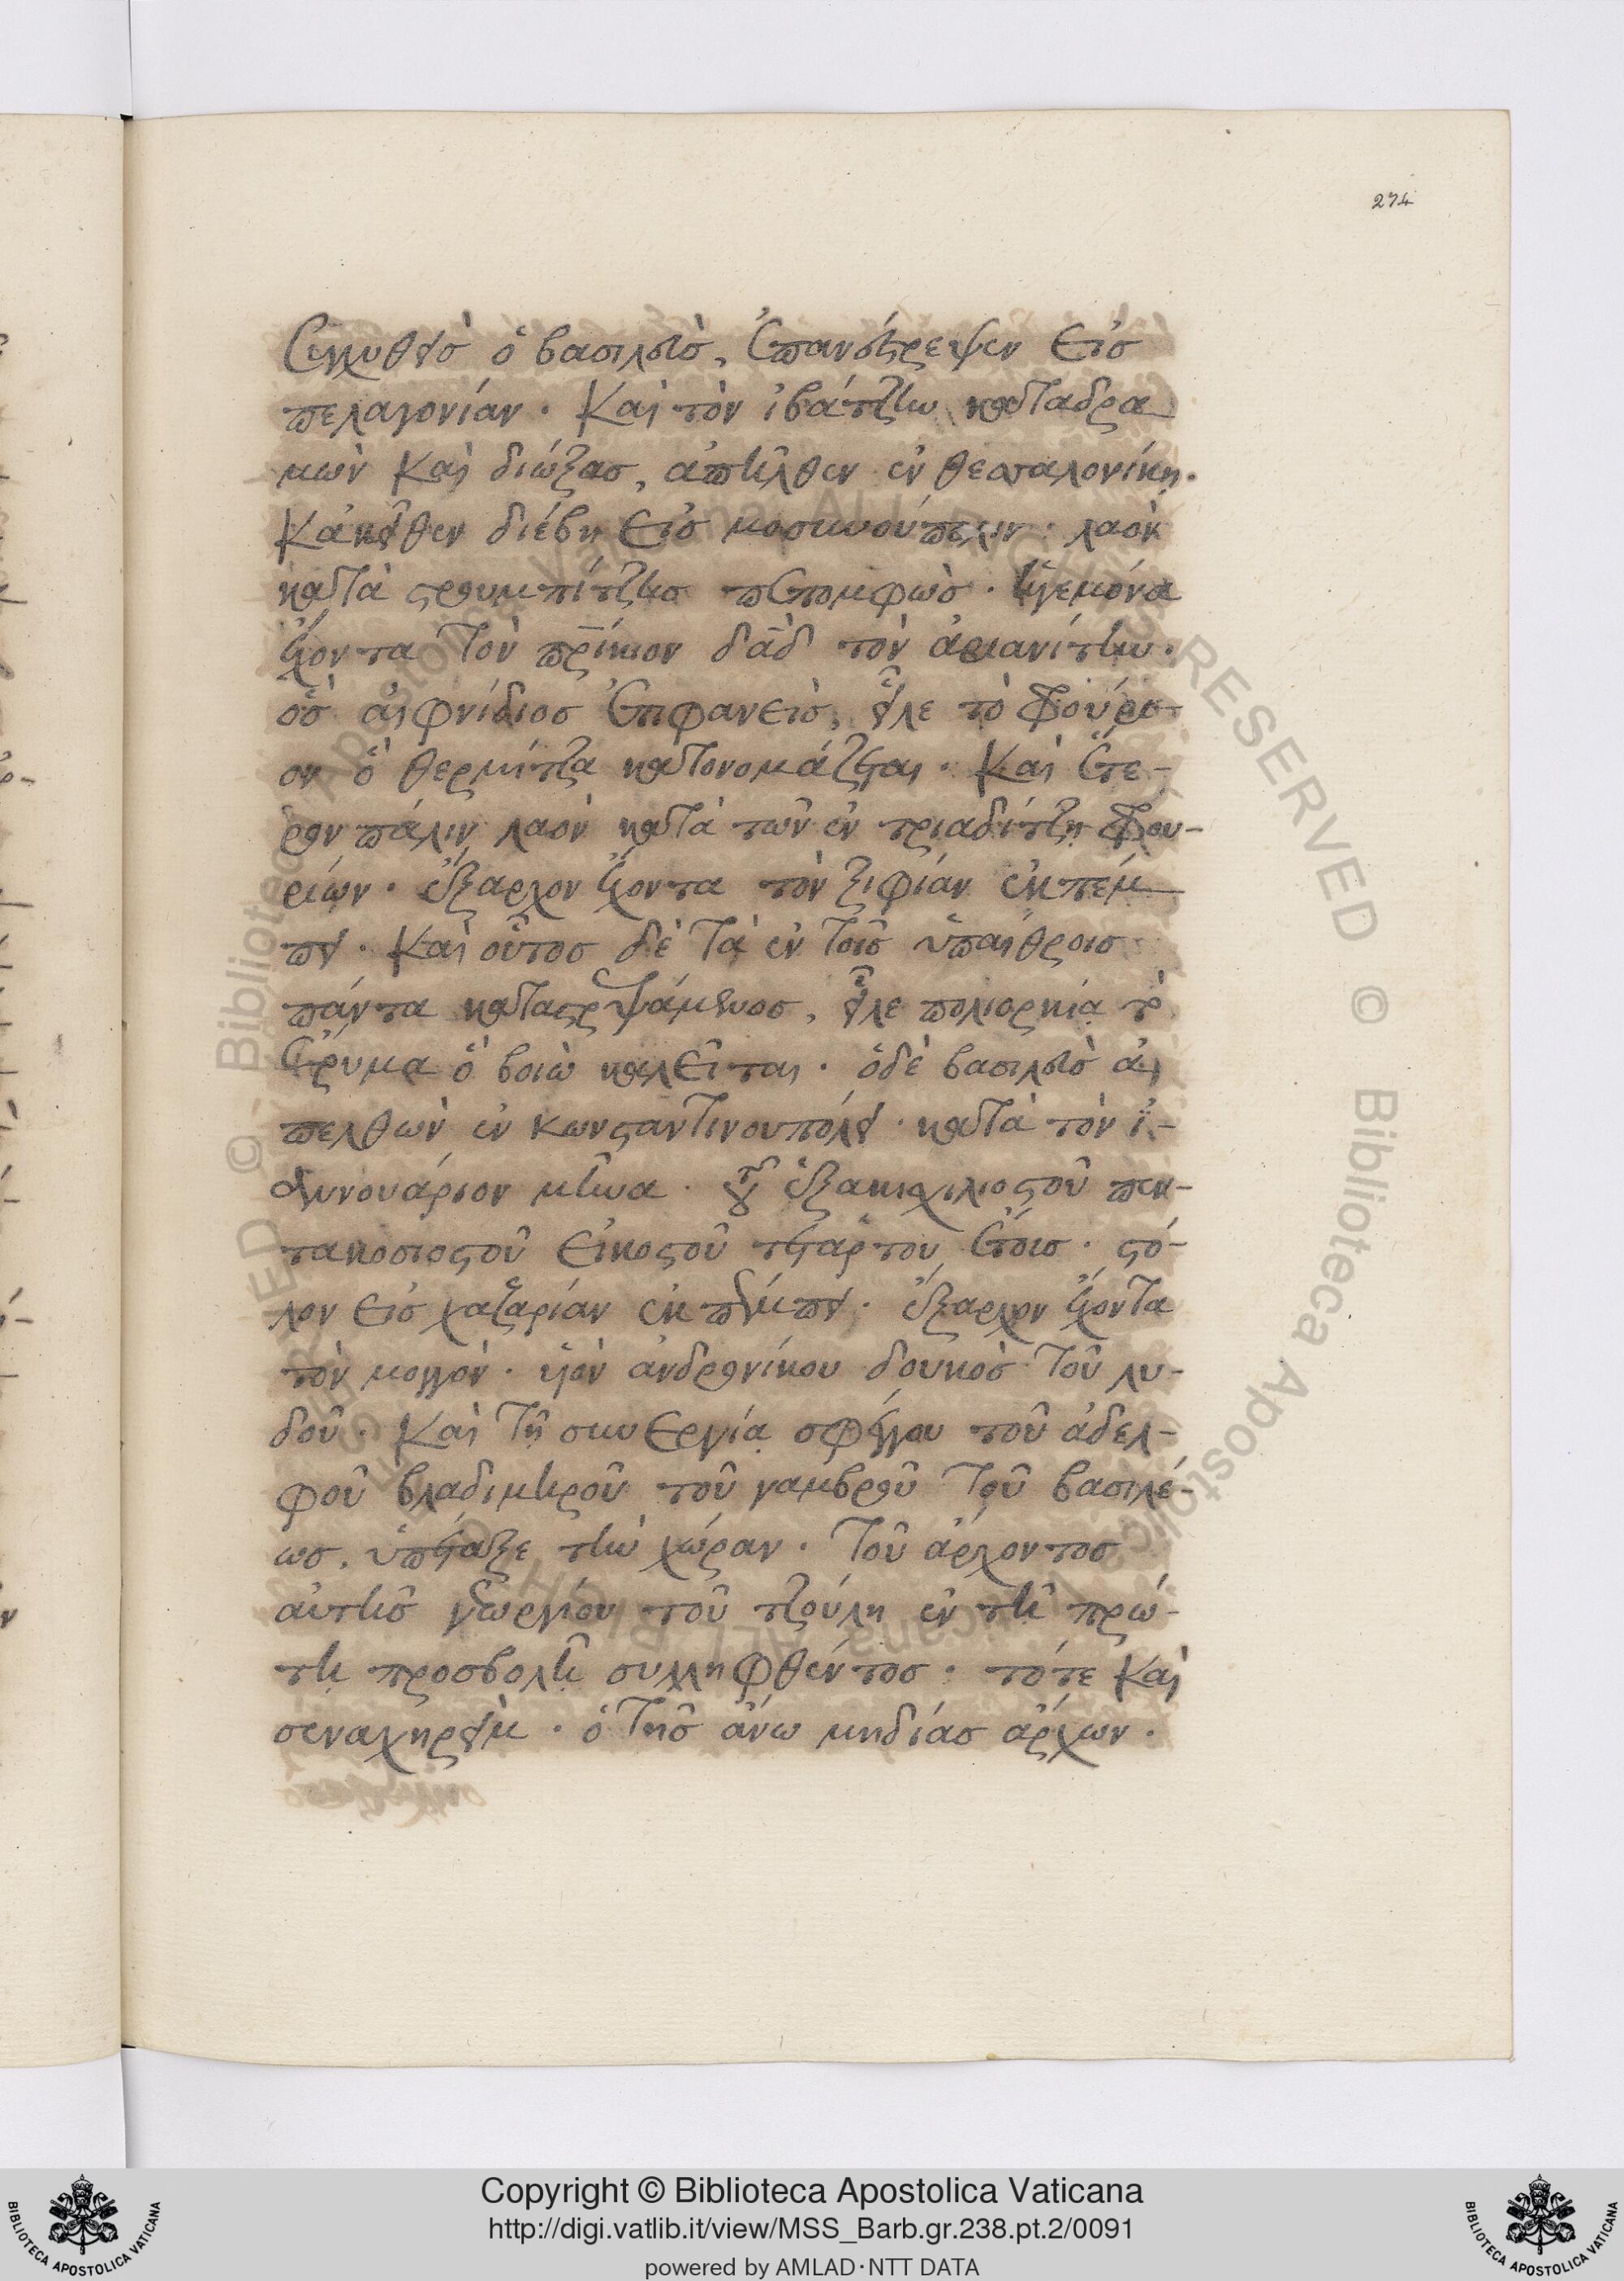 274
συγχυθεὶσ ὁ βασιλεὺσ, ἐπανέστρεψεν εἰσ
πελαγονίαν. καὶ τὸν ἰβάτζην καταδρα
μὼν καὶ διώξασ, ἀπῆλθεν ἐν θεσσαλονίκη.
κἀκεῖθεν διέβη εἰσ μοσυνούπολιν. λαὸν
κατὰ στρουμπίτζησ πεπομφὼσ. ἡγεμόνα
ἔχοντα τὸν πρίκιον δᾱδ τὸν ἀριανίτην.
ὃσ αἰφνίδιοσ ἐπιφανεὶσ, εἷλε τὸ φρούρι-
ον ὃ θερμίτζα κατονομάζεται. καὶ ἕτε-
ρον πάλιν λαὸν κατὰ τῶν ἐν τριαδίτζη φρου-
ρίων. ἔξαρχον ἔχοντα τὸν ξιφίαν ἐκπέμ
πει. καὶ οὗτοσ δὲ τὰ ἐν τοῖσ ὑπαίθροισ
πάντα καταστρεψάμενοσ, εἷλε πολιορκία τὸ
ἔρυμα ὃ βοιὼ καλεῖται. ὁδὲ βασιλεὺσ ἀ
πελθὼν ἐν κωνσταντινουπόλει. κατὰ τὸν ἰ-
αννουάριον μῆνα. τοῦ ἑξακισχιλιοστοῦ πεν-
τακοσιοστοῦ εἰκοστοῦ τετάρτου ἔτουσ. στό-
λον εἰσ χαζαρίαν ἐκπέμπει. ἔξαρχον ἔχοντα
τὸν μογγὸν. υἱὸν ἀνδρονίκου δουκὸσ τοῦ λυ-
δοῦ. καὶ τῆ συνεργία σφέγγου τοῦ ἀδελ-
φοῦ βλαδιμηροῦ τοῦ γαμβροῦ τοῦ βασιλέ-
ωσ. ὑπέταξε τὴν χώραν. τοῦ ἄρχοντοσ
αὐτῆσ γεωργίου τοῦ τζούλη ἐν τῆ πρώ-
τη προσβολῆ συλληφθέντοσ. τότε καὶ
σεναχηρεὶμ. ὁ τῆσ ἄνω μηδίασ ἄρχων.
Copyright © Biblioteca Apostolica Vaticana
http://digi.vatlib.it/view/MSS_Barb.gr.238.pt.2/0091
powered by AMLAD·NTT DATA